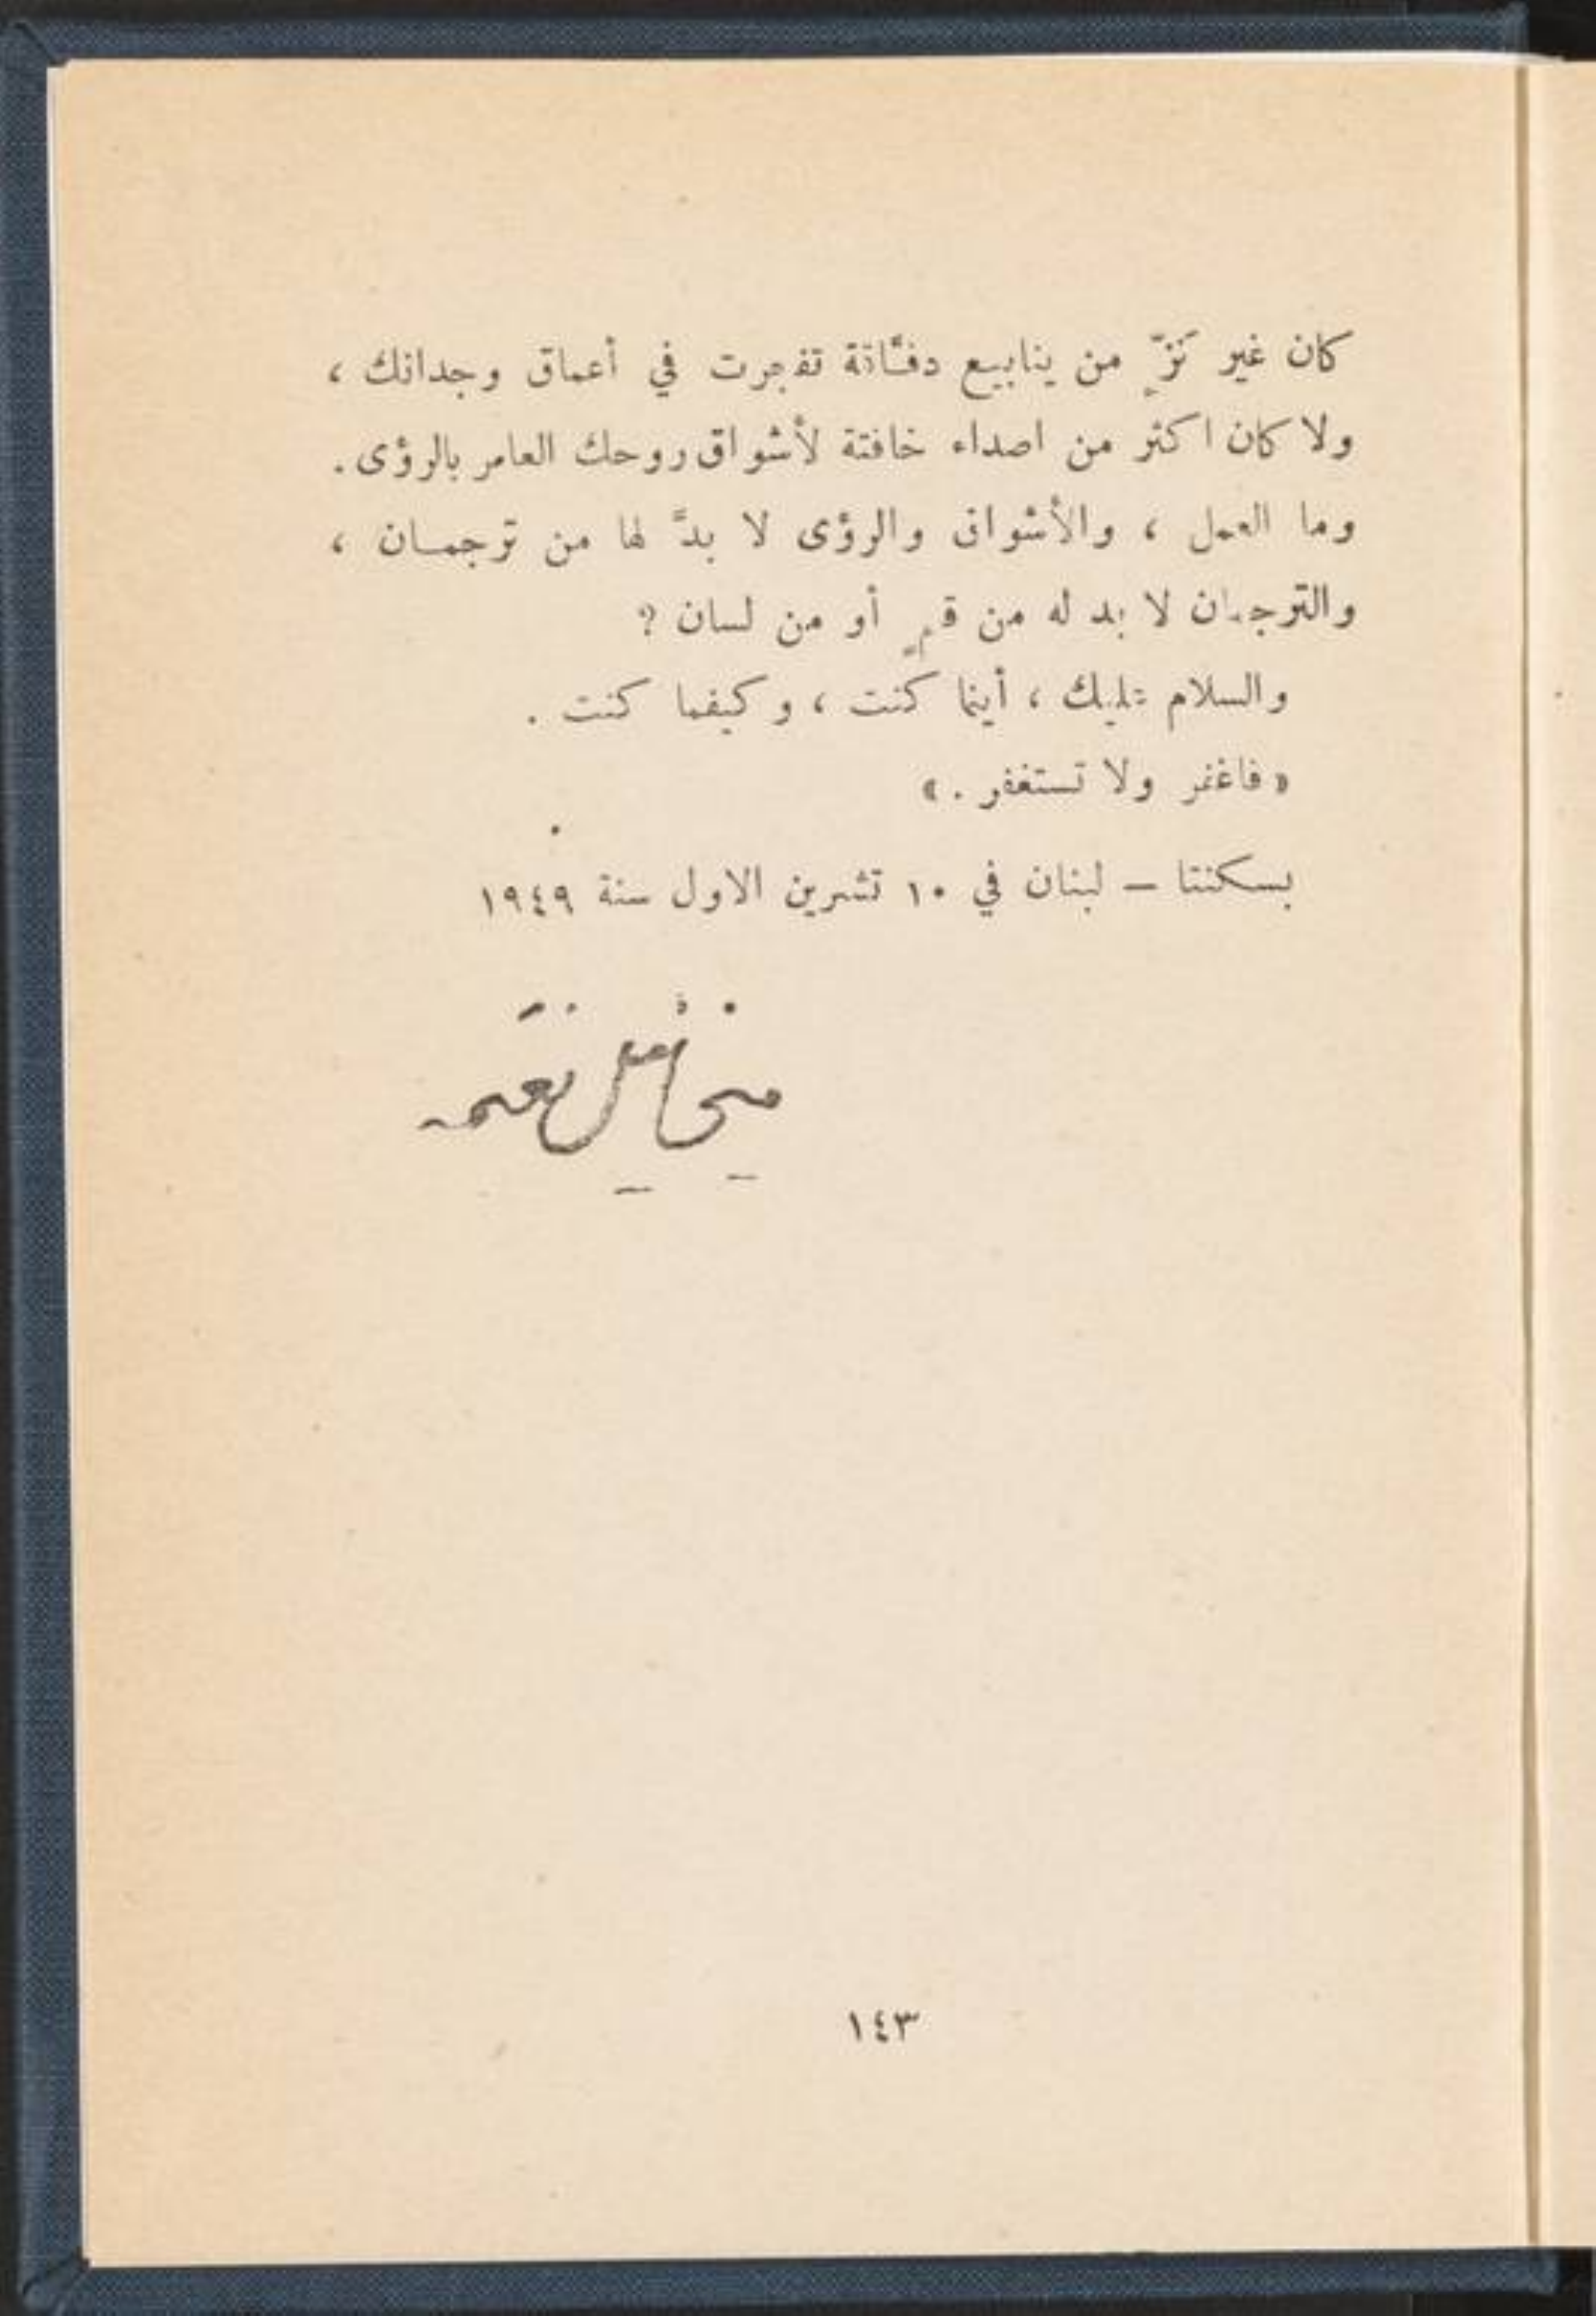 كان غير نَزٍّ من ينابيع دفَّاقة تفجرت في أعماق وجدانك ،
ولا كان اكثر من اصداء خافتة لأشواق روحك العامر بالرؤى .
وما العمل ، والأشواق والرؤى لا بدَّ لها من ترجمان ،
والترجمان لا بد له من فمٍ أو من لسان ?
والسلام عليك ، أينما كنت ، وكيفما كنت .
« فاغفر ولا تستغفر . »
بسكنتا – لبنان في ١٠ تشرين الاول سنة ١٩٤٩
ميخائيل نعيمه
١٤٣